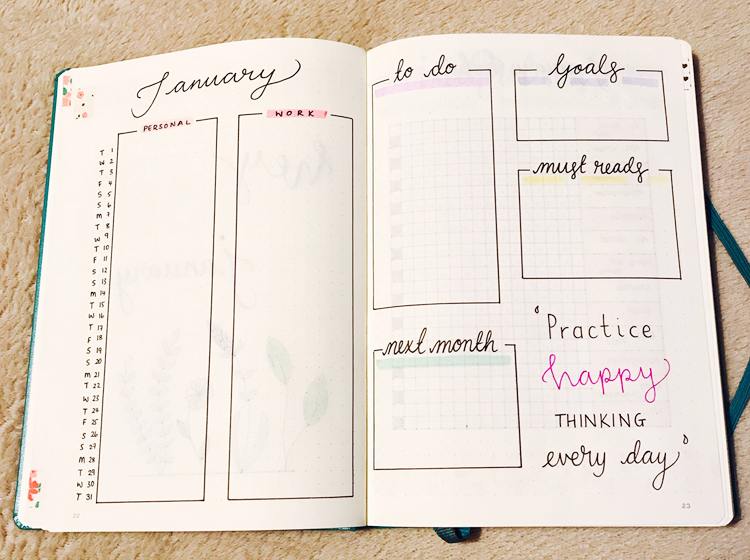 January
PERSONAL
WORK
T 1
W 2
T 3
F 4
S 5
S 6
M 7
T 8
W 9
T 10
F 11
S 12
S 13
M 14
T 15
W 16
T 17
F 18
S 19
S 20
M 21
T 22
W 23
T 24
F 25
S 26
S 27
M 28
T 29
W 30
T 31
22
to do
Goals
must reads
next month
'Practice
happy
THINKING
every day'
23